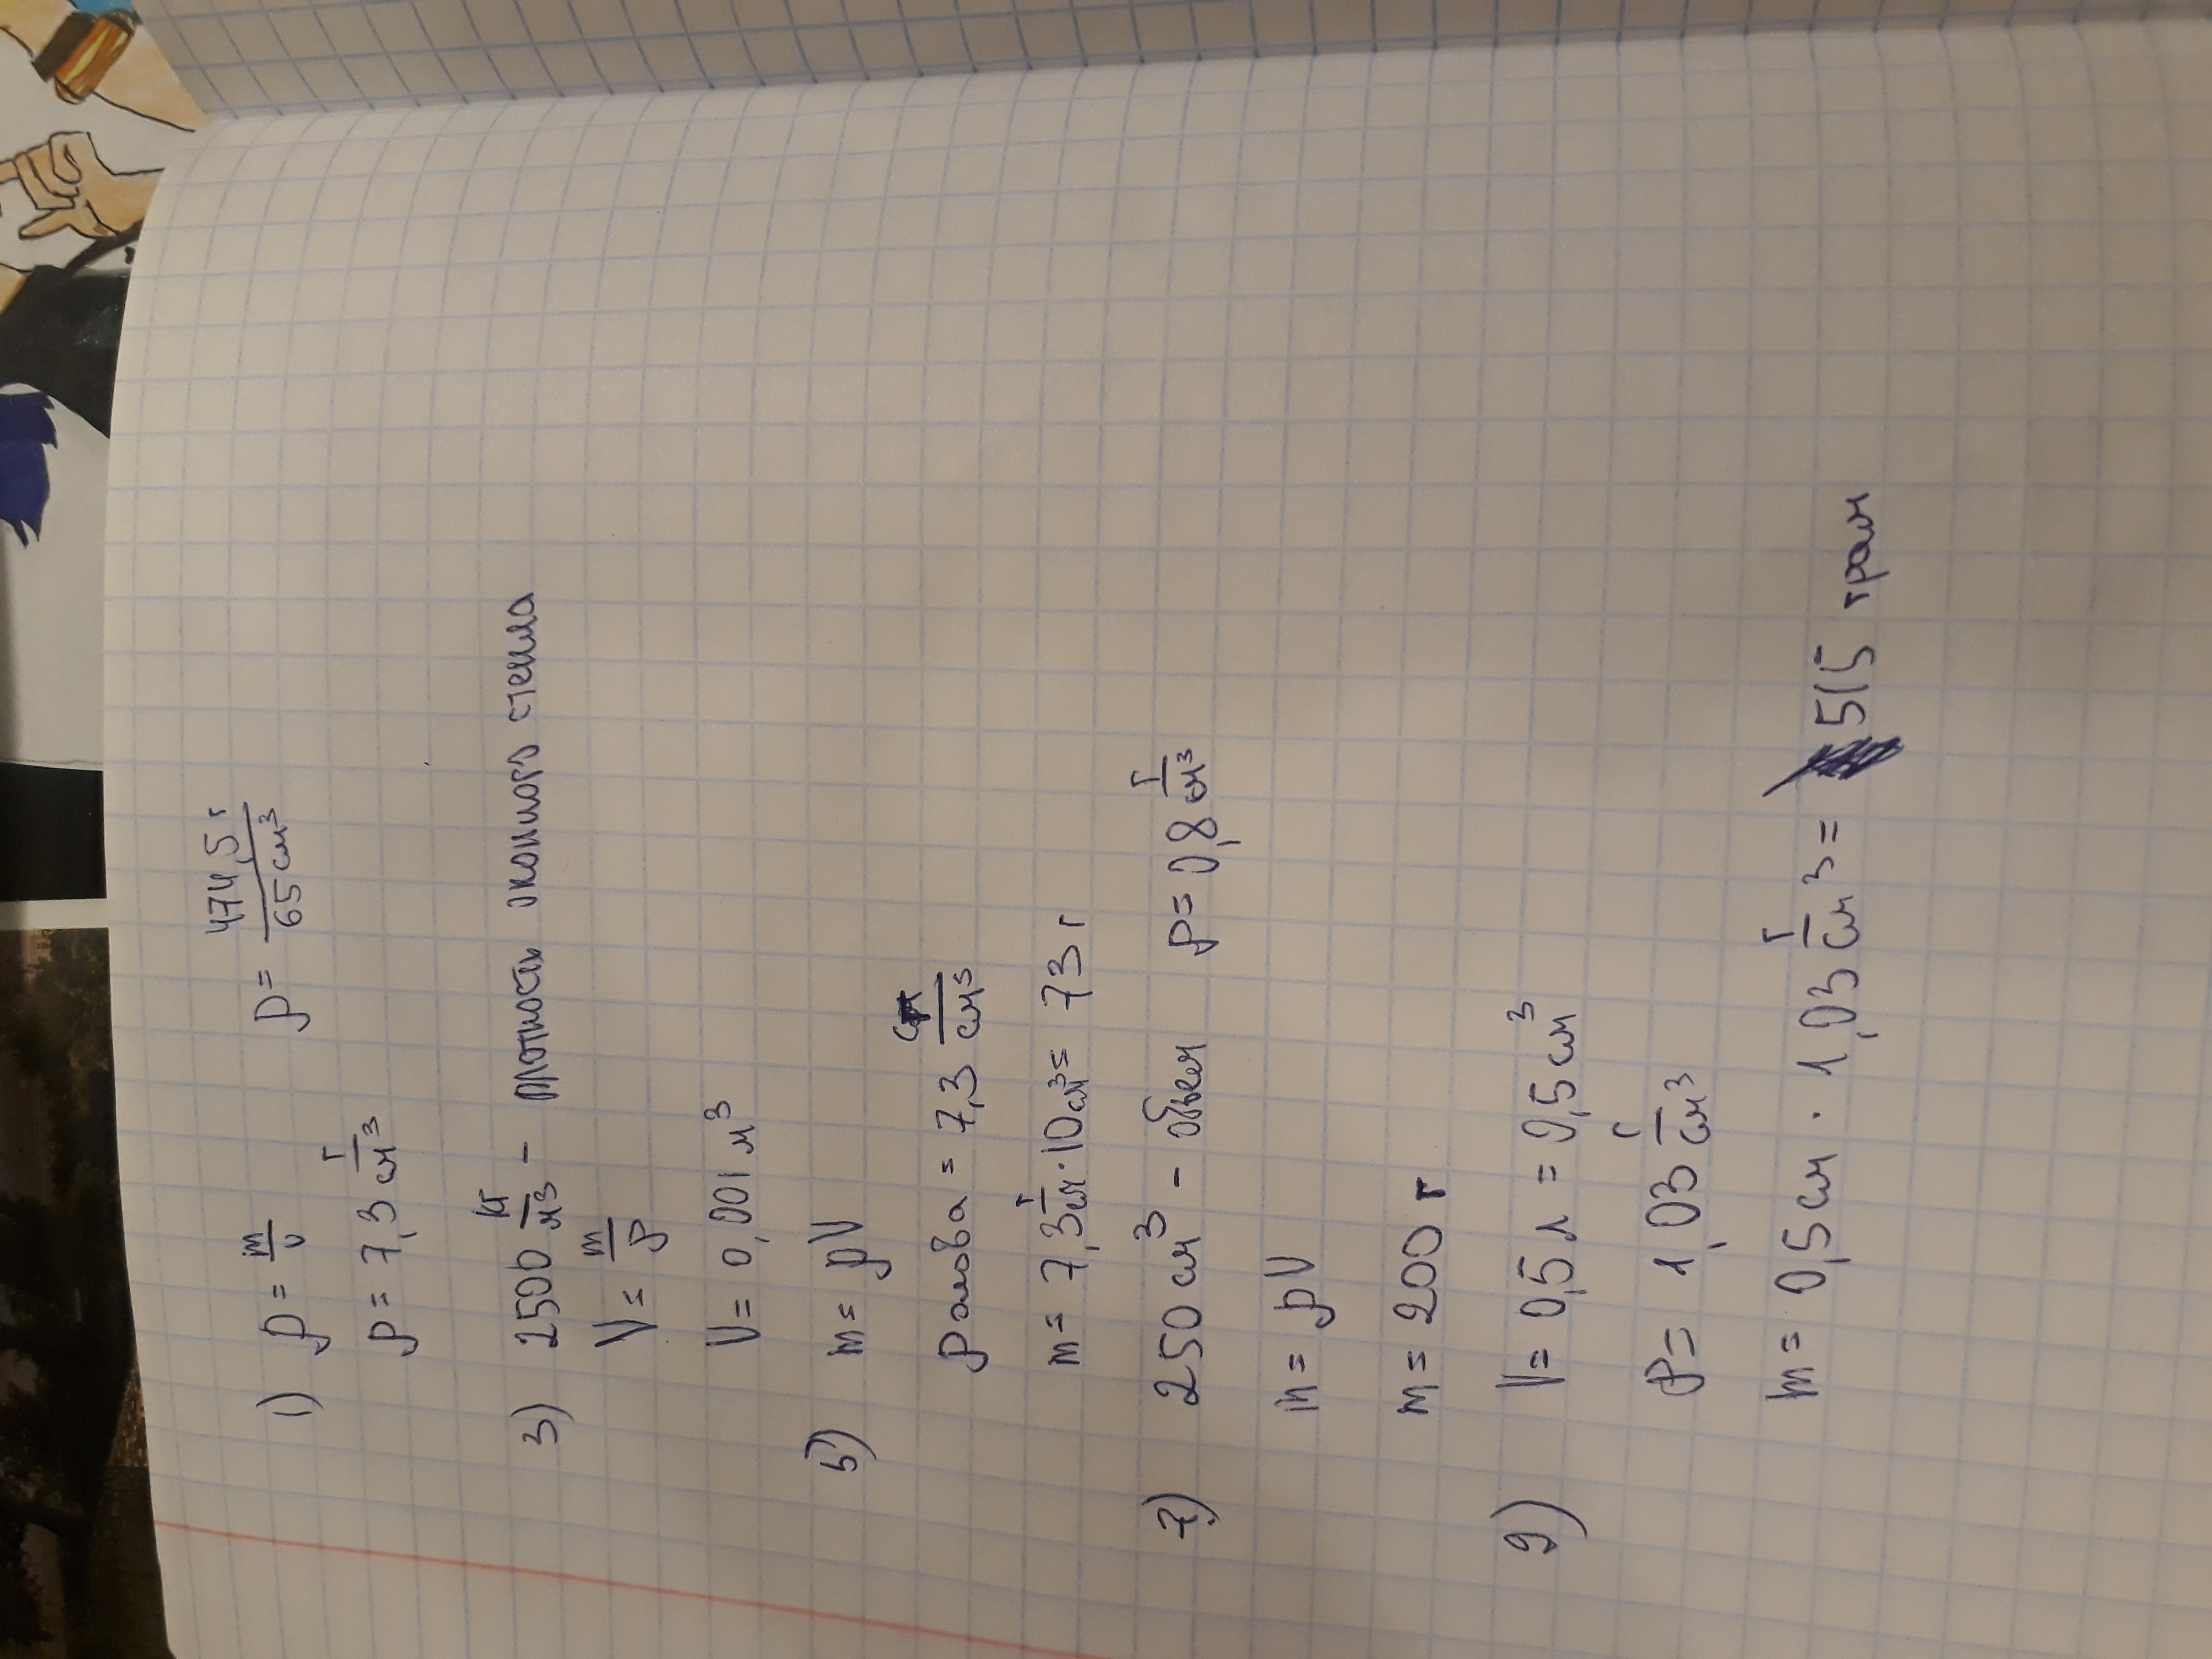 1) p = m/v p = 474,5 г/65 см³
p = 7,3 г/см³
3) 2500 кг/м³ - плотность оконного стекла
V = m/p
V = 0,001 м³
5) m = pV
p олова = 7,3 г/см³
m = 7,3 г/см · 10 см³ = 73 г
7) 250 см³ - объем p = 0,8 г/см³
m = pV
m = 200 г
9) V = 0,5 л = 0,5 см³
p = 1,03 г/см³
m = 0,5 см · 1,03 г/см³ = 515 грам